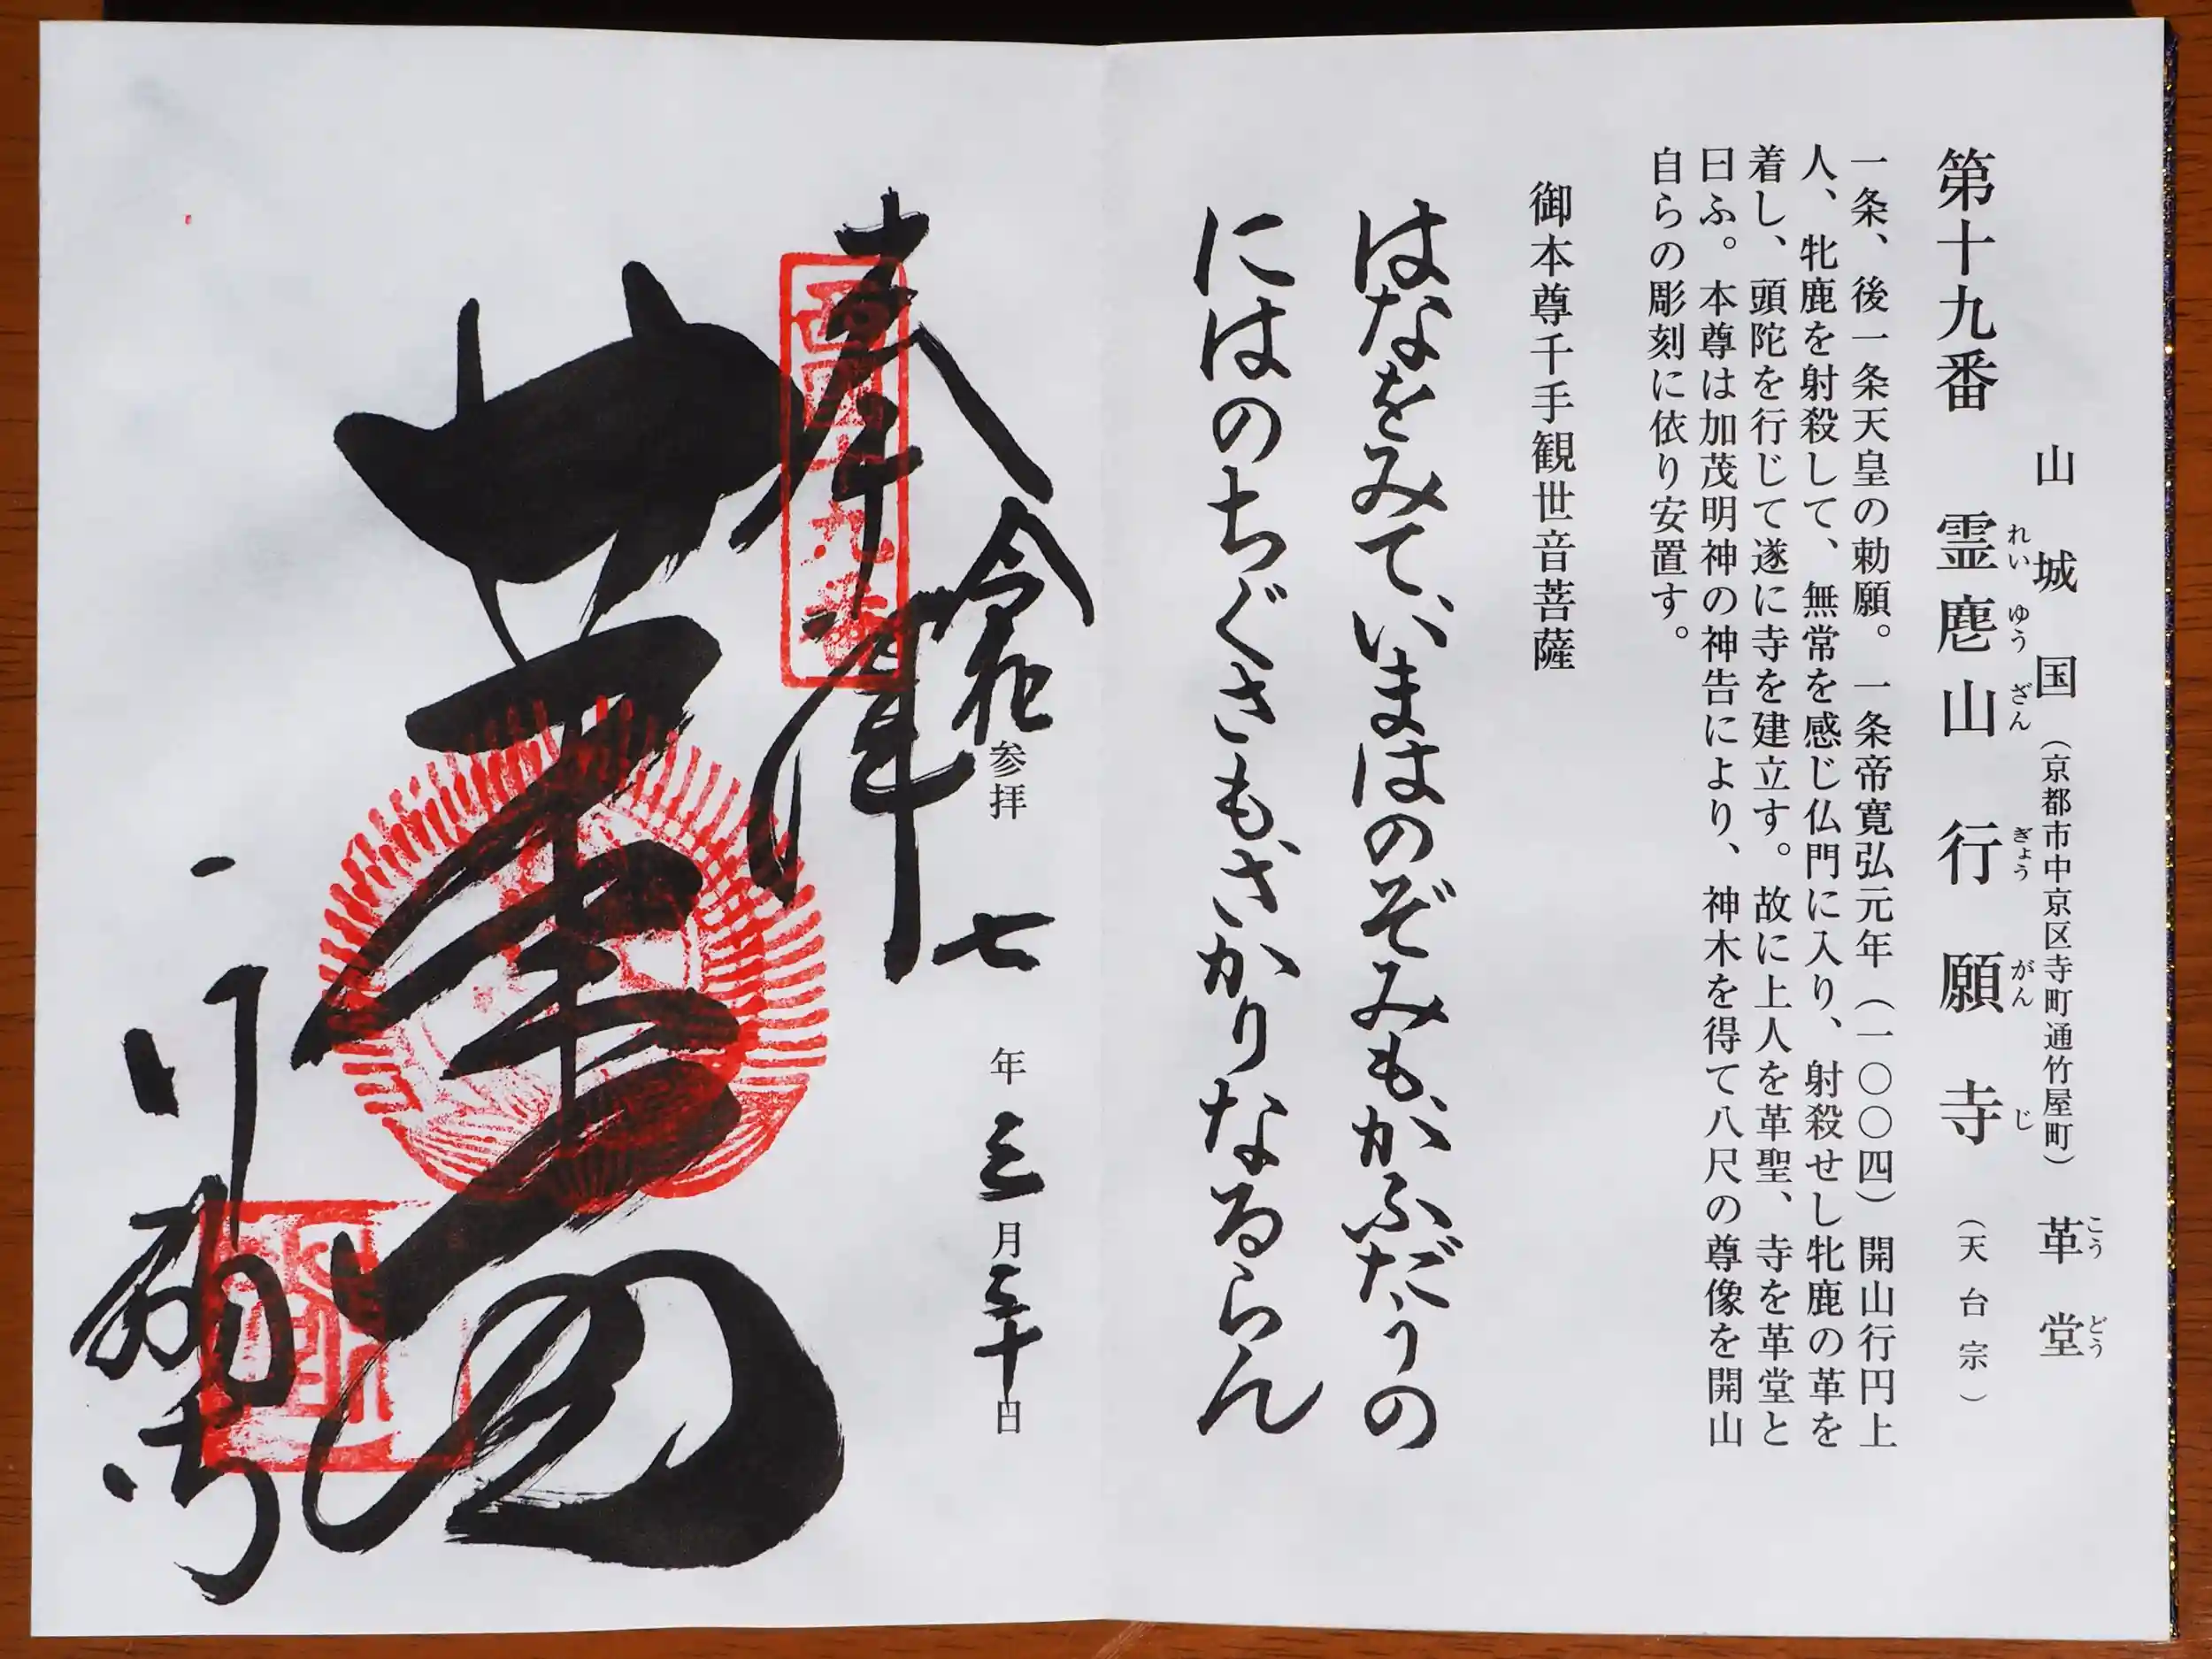 山城国（京都市中京区寺町通竹屋町）革堂
こうどう
第十九番 霊麀山 行願寺（天台宗）
れいゆうざん ぎょうがんじ
一条、後一条天皇の勅願。一条帝寛弘元年（一〇〇四）開山行円上
人、牝鹿を射殺して、無常を感じ仏門に入り、射殺せし牝鹿の革を
着し、頭陀を行じて遂に寺を建立す。故に上人を革聖、寺を革堂と
曰ふ。本尊は加茂明神の神告により、神木を得て八尺の尊像を開山
自らの彫刻に依り安置す。
御本尊千手観世音菩薩
はなをみていまはのぞみもかふだうの
にはのちぐさもさかりなるらん
令和七年三月三十日
参拝
奉拝
西国十九番
革堂
行願寺